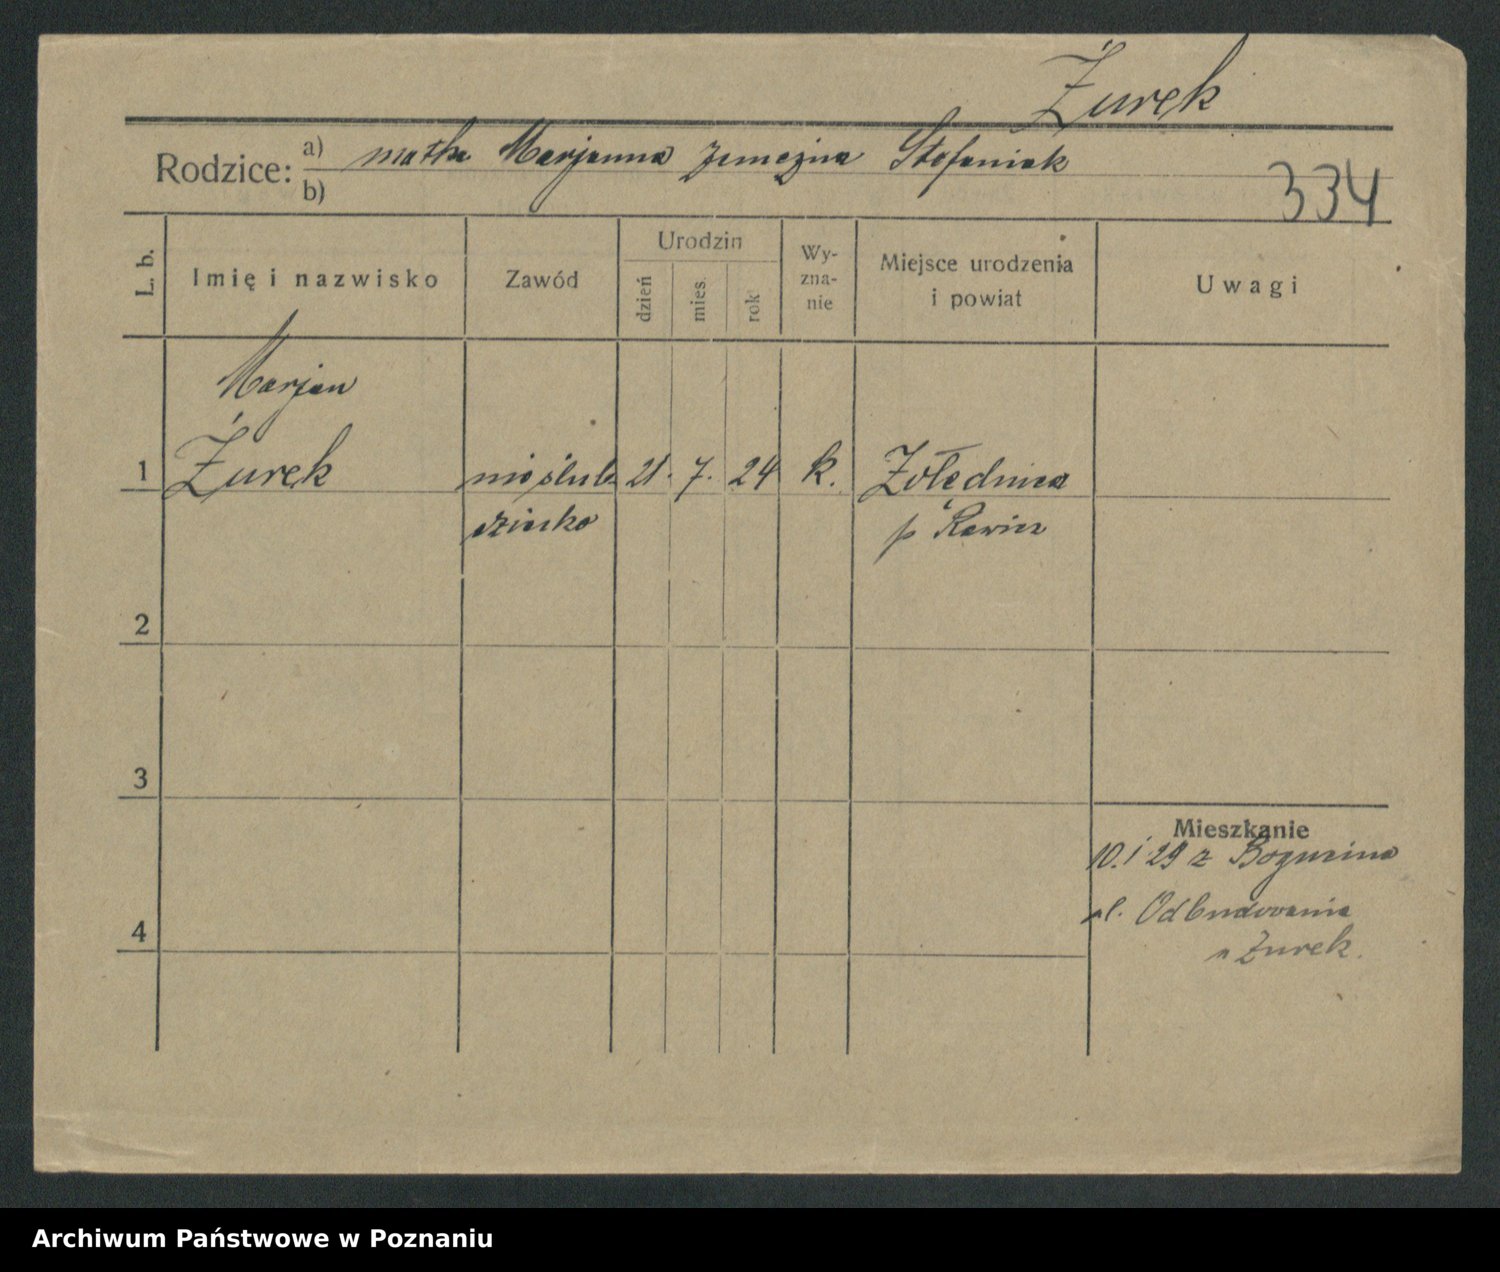 Żurek
Rodzice: a) matka Marjanna zamężna Stefaniak
b)
334
L. b.
Imię i nazwisko
Zawód
Urodzin
dzień
mies.
rok
Wy-
zna-
nie
Miejsce urodzenia
i powiat
Uwagi
Marjan
1 Żurek nieślub 21. 7. 24 k. Żołędnica
dziecko p Rawicz
2
3
Mieszkanie
10. 1 29 z
ul. Odbudowania
4
Żurek.
Archiwum Państwowe w Poznaniu